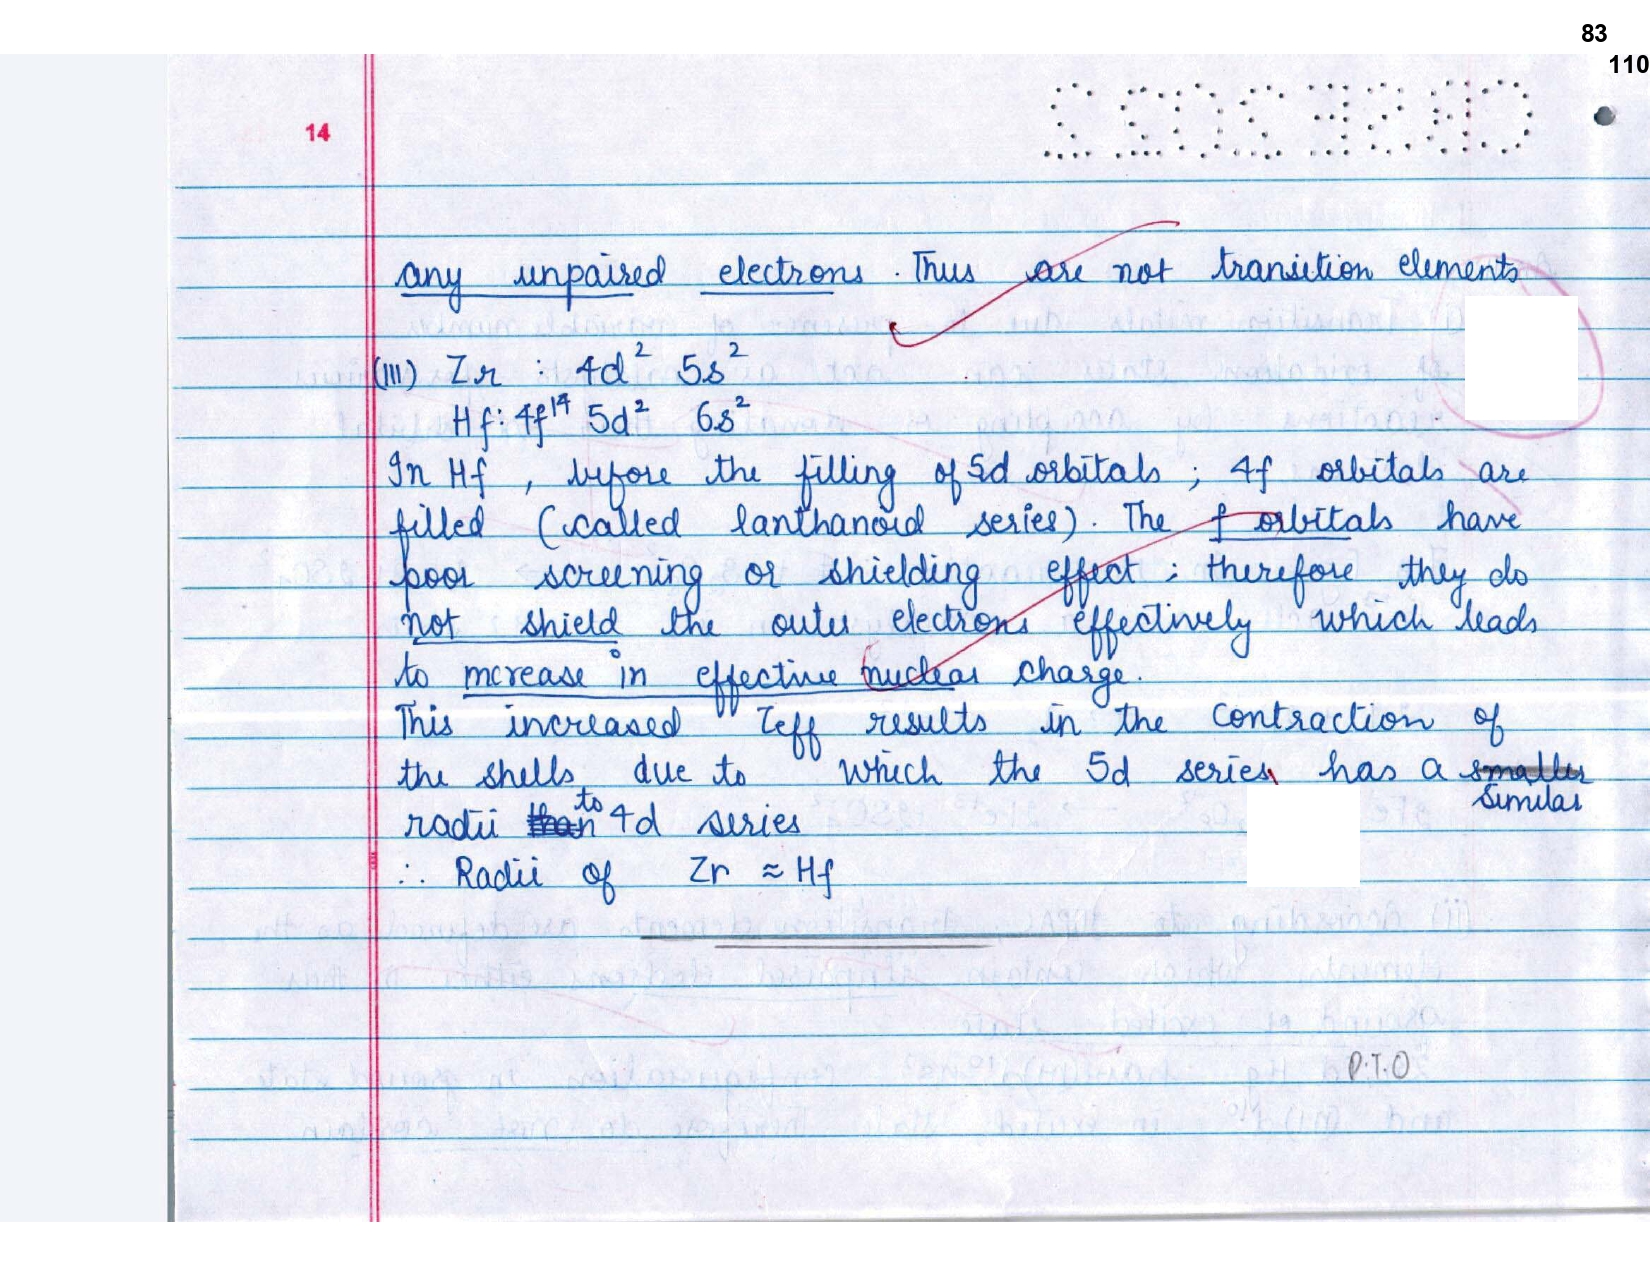 83
110
14
CBSE2022
any unpaired electrons. Thus are not transition elements
(III) Zr : 4d² 5s²
Hf: 4f¹⁴ 5d² 6s²
In Hf , before the filling of 5d orbitals ; 4f orbitals are
filled (called lanthanoid series). The f orbitals have
poor screening or shielding effect ; therefore they do
not shield the outer electrons effectively which leads
to increase in effective nuclear charge.
This increased Zeff results in the contraction of
the shells due to which the 5d series has a smaller similar
radii than to 4d series
∴ Radii of Zr ≈ Hf
P.T.O